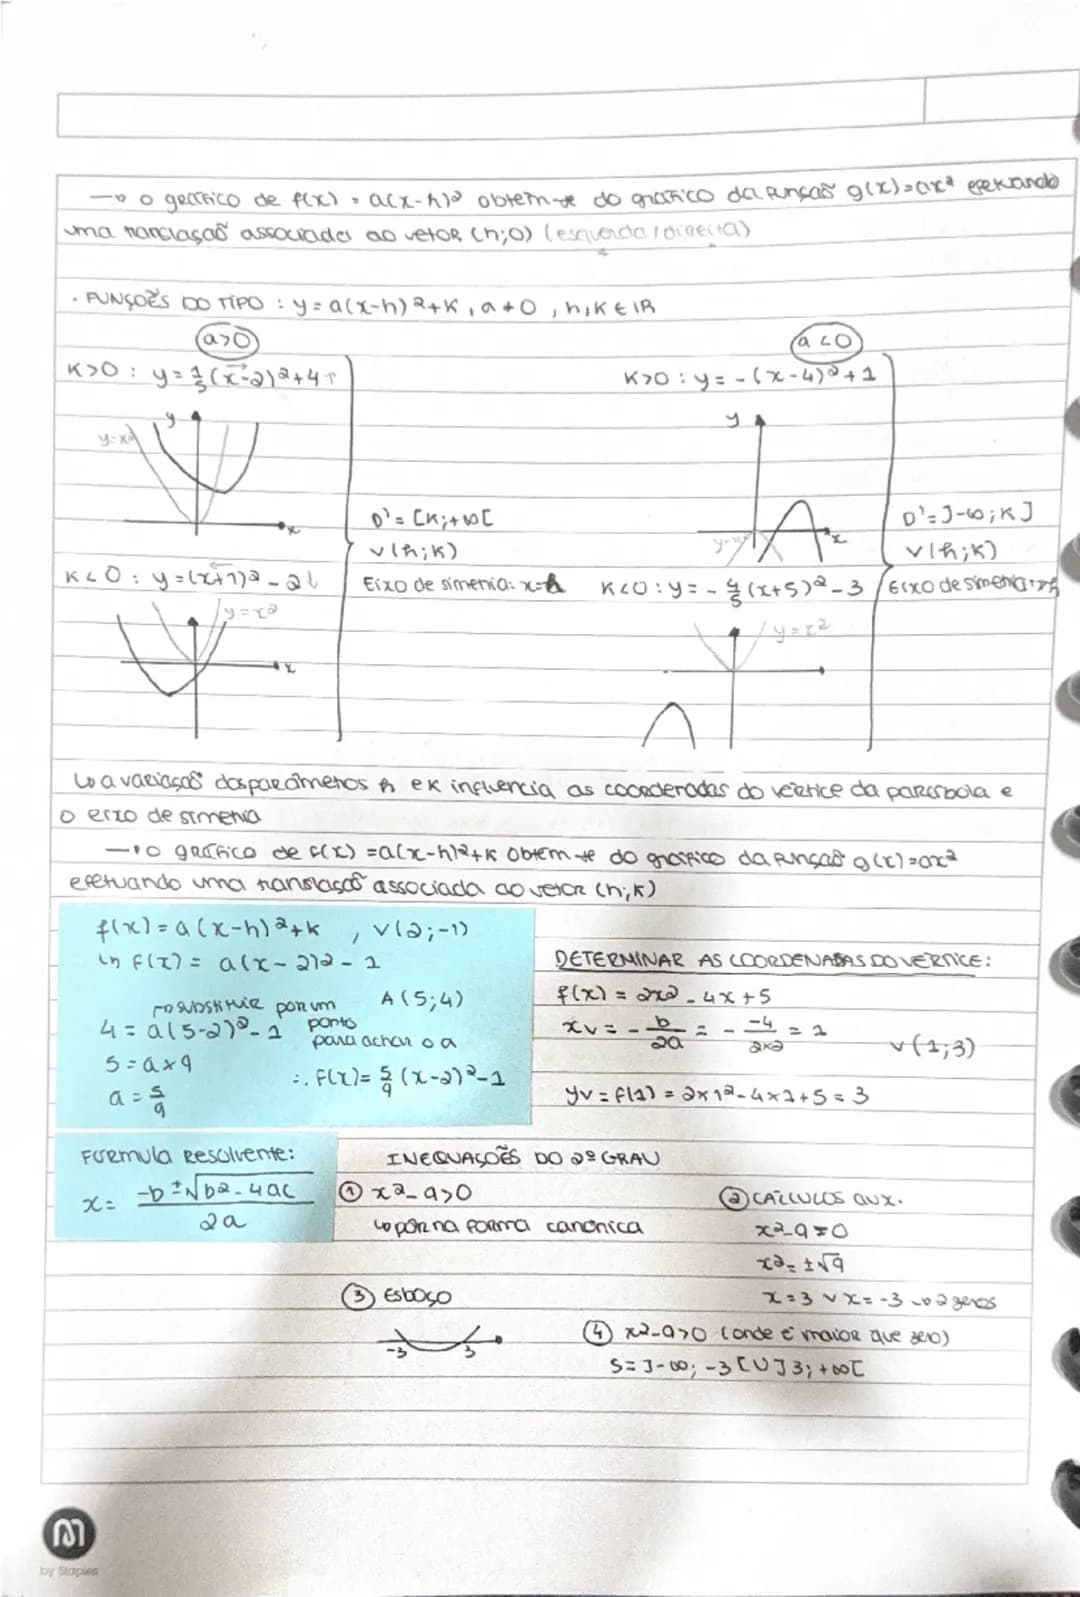 → o gráfico de f(x) = a(x-h)² obtem-se do gráfico da função g(x)=ax² efetuando
uma translação associada ao vetor (h;0) (esquerda/direita)
. FUNÇÕES DO TIPO : y = a(x-h)²+K , a≠0 , h,K ∈ IR
a>0
K>0 : y = 1/5 (x-2)²+4↑
y
y=x²
x
K<0 : y=(x+1)²-2↓
y=x²
x
D'= [K;+∞[
V(h;K)
Eixo de simetria: x=h
a<0
K>0 : y = -(x-4)²+1
y
x
K<0 : y = - 4/5 (x+5)²-3
y=x²
D'=]-∞;K]
V(h;K)
Eixo de simetria: x=h
↳ a variação dos parâmetros h e K influencia as coordenadas do vértice da parábola e
o eixo de simetria
→ o gráfico de f(x) =a(x-h)²+K obtem-se do gráfico da função g(x)=ax²
efetuando uma translação associada ao vetor (h;K)
f(x) = a(x-h)²+k , V(2;-1)
↳ f(x) = a(x-2)²-1
→ substituir por um ponto para achar o a
A(5;4)
4 = a(5-2)²-1
5 = a×9
a = 5/9
∴ f(x)= 5/9 (x-2)²-1
DETERMINAR AS COORDENADAS DO VÉRTICE:
f(x) = 2x²-4x+5
xv = - b/2a = - -4/2×2 = 1
V(1;3)
yv = f(1) = 2×1²-4×1+5 = 3
Fórmula Resolvente:
x = -b±√b²-4ac / 2a
INEQUAÇÕES DO 2º GRAU
① x²-9>0
↳ pôr na forma canónica
② CÁLCULOS AUX.
x²-9=0
x²=±√9
x=3 ∨ x=-3 → 2 zeros
③ Esboço
-3 3
④ x²-9>0 (onde é maior que zero)
S=]-∞;-3[∪]3;+∞[
by Staples